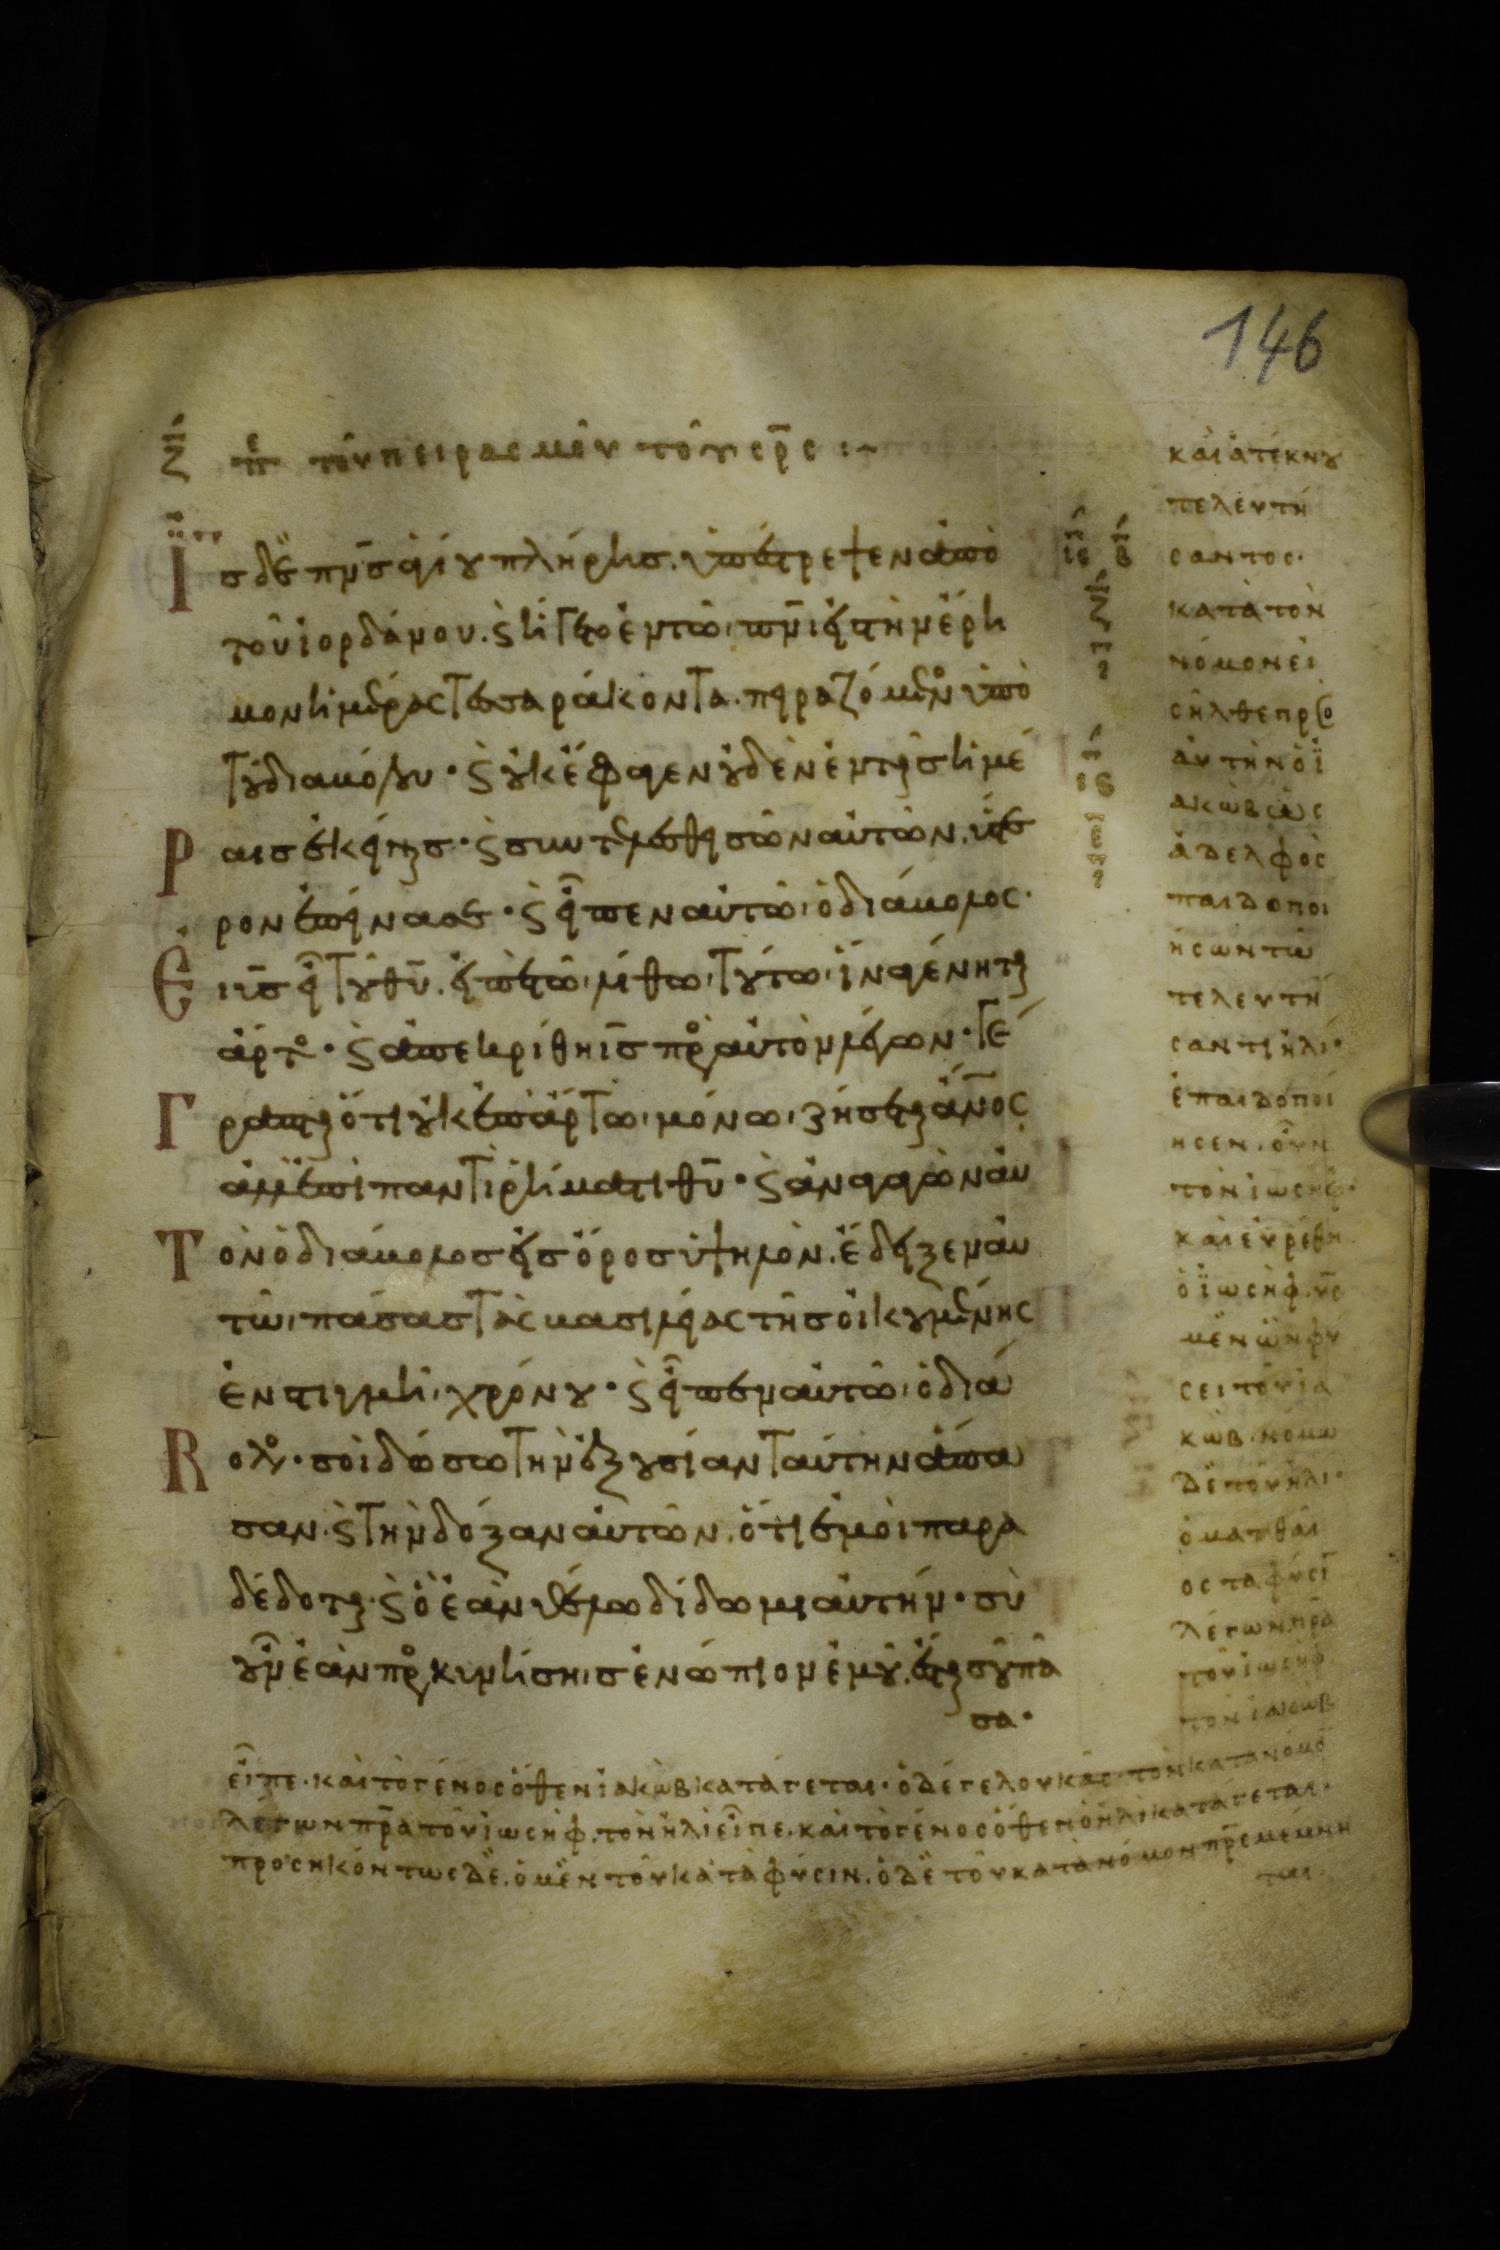 146
ζ πε τοῦ πειρασμοῦ τοῦ σρ̅ς :~
Ἰσ δὲ πν̅σ ἁγίου πλήρης. ὑπέστρεψεν ἀπὸ
τοῦ ἰορδάνου. ϛ ἤγετο ἐν τῶ πν̅ι εἰς τὴν ἔρη
μον ἡμέρας τεσσαράκοντα. πειραζόμενος ὑπὸ
τοῦ διαβόλου· ϛ οὐκ ἔφαγεν οὐδὲν ἐν ταῖς ἡμέ
ραισ ἐκείναισ· ϛ συντελεσθεισῶν αὐτῶν, ὕστε
ρον ἐπείνασε· ϛ εἶπεν αὐτῶ ὁ διάβολος·
Εἰ υς̅ εἶ τοῦ θυ̅. εἰπὲ τῶ λίθω τούτω ἵνα γένηται
ἄρτος· ϛ ἀπεκρίθη ις̅ πρὸς αὐτὸν λέγων· Γέ
γραπται ὅτι οὐκ ἐπ ἄρτω μόνω ζήσεται ἄνος̅
ἀλλ ἐπὶ παντὶ ῥήματι θυ̅· ϛ ἀναγαγὼν αὐ
τὸν ὁ διάβολοσ εἰσ ὄροσ ὑψηλὸν. ἔδειξεν αὐ
τῶ πάσασ τὰς βασιλείας τῆσ οἰκουμένης
ἐν στιγμῆ χρόνου· ϛ εἶπεν αὐτῶ ὁ διά
βολος· σοὶ δώσω τὴν ἐξουσίαν ταύτην ἅπα
σαν. ϛ τὴν δόξαν αὐτῶν. ὅτι ἐμοὶ παρα
δέδοται. ϛ ὃ ἐὰν θέλω δίδωμι αὐτήν· σὺ
οὖν ἐὰν προσκυνήσησ ἐνώπιον ἐμοῦ. ἔσται σοῦ πᾶ
σα·
καὶ ἀτέκνου
τελευτή
σαντος·
κατὰ τὸν
νόμον εἰ
σῆλθε πρὸς
αὐτὴν ὁ ἰ
ακὼβ ὡς
ἀδελφὸς
παιδοποι
ήσων τῶ
τελευτή
σαντι ἠλί·
ἐπαιδοποί
ησεν. οὖν
τὸν ἰωσὴφ·
καὶ εὑρέθη
ὁ ἰωσὴφ. υς̅
μὲν ὢν φύ
σει τοῦ ἰα
κὼβ. νόμω
δὲ τοῦ ἠλι·
ὁ ματθαῖ
ος τὰ φύσει
λέγων πρ̅α
τοῦ ἰωσὴφ.
τὸν ἰακὼβ
εἶπε. καὶ τὸ γένος ὅθεν ἰακὼβ κατάγεται· ὁ δέ γε λουκᾶς. τὸν κατὰ νόμο
λέγων πρ̅α τοῦ ἰωσὴφ. τὸν ἠλὶ εἶπε. καὶ τὸ γένος ὅθεν ὁ ἠλὶ κατάγεται.
προσηκόντως δὲ. ὁ μὲν τοῦ κατὰ φύσιν. ὁ δὲ τοῦ κατὰ νόμον πρ̅ς μέμνη
ται.